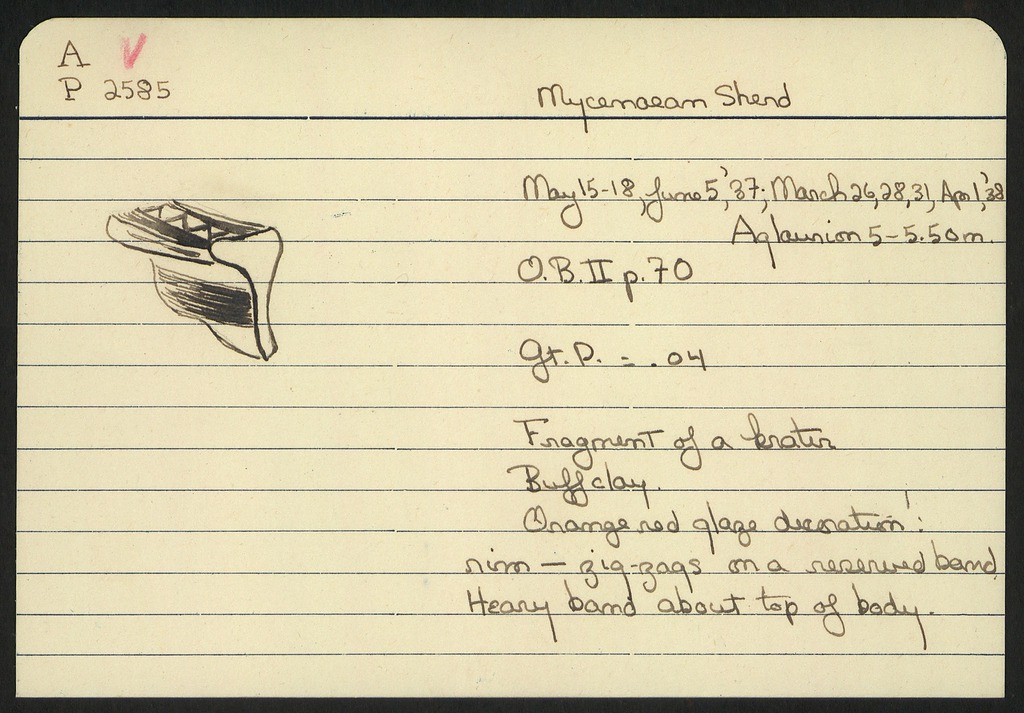 A V
P 2585
Mycenaean Sherd
May 15-18, June 5, '37; March 26, 28, 31, Apr 1, '38
Aglaurion 5-5.50m.
O.B. II p. 70
Gr. D. = .04
Fragment of a krater
Buff clay.
Orange red glaze decoration:
rim — zig-zags on a reserved band
Heavy band about top of body.